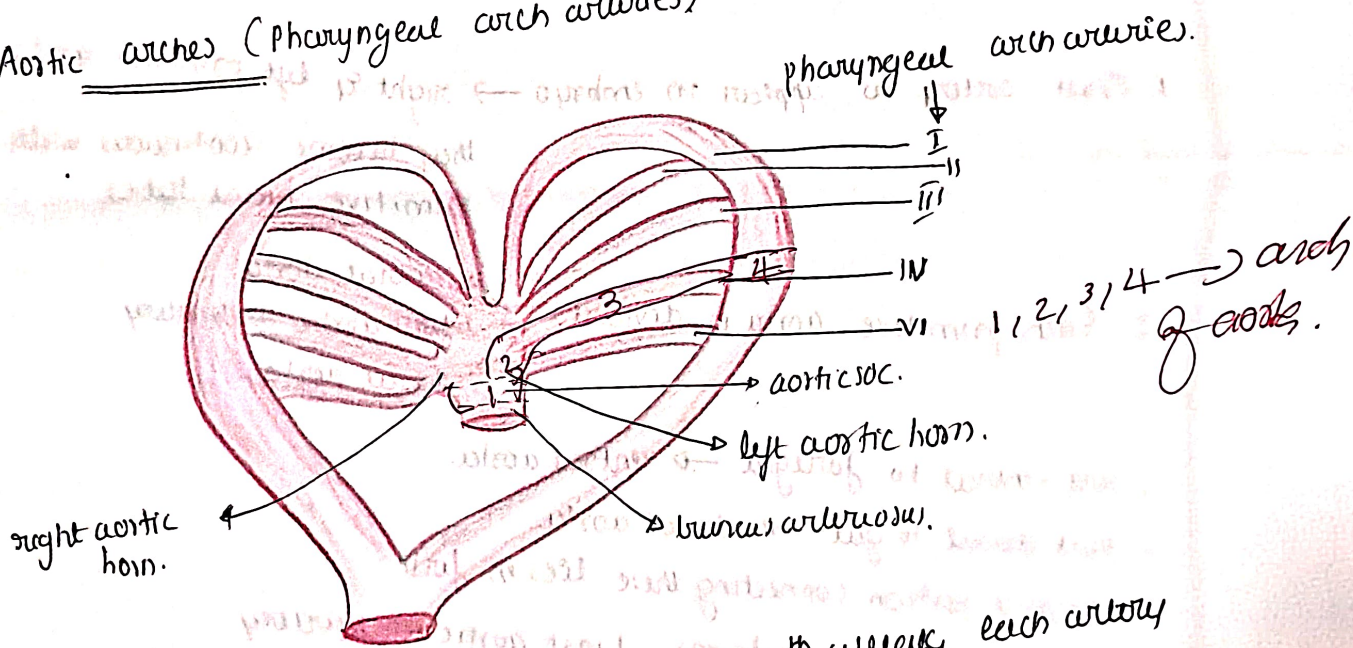 Aortic arches (Pharyngeal arch arteries)
pharyngeal arch arteries.
I
II
III
IV
VI
1, 2, 3, 4 → arch
of aorta.
4
3
2
1
aortic sac.
left aortic horn.
truncus arteriosus.
right aortic
horn.
each artery